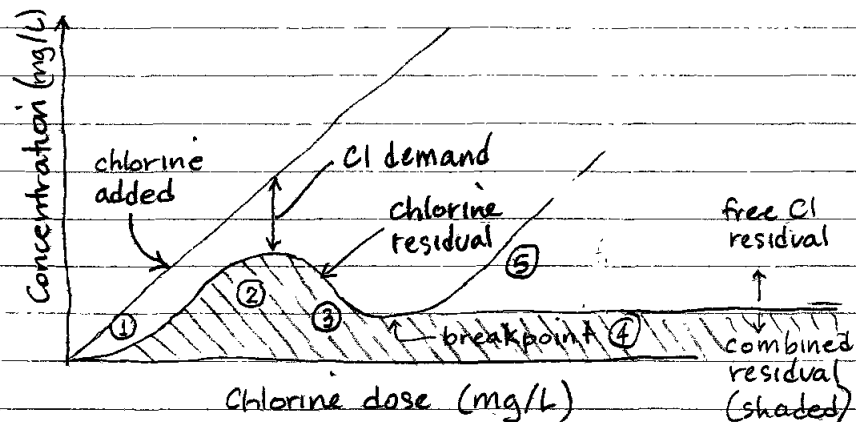 Concentration (mg/L)
chlorine
added
Cl demand
chlorine
residual
free Cl
residual
①
②
③
④
⑤
breakpoint
combined
residual
(shaded)
Chlorine dose (mg/L)